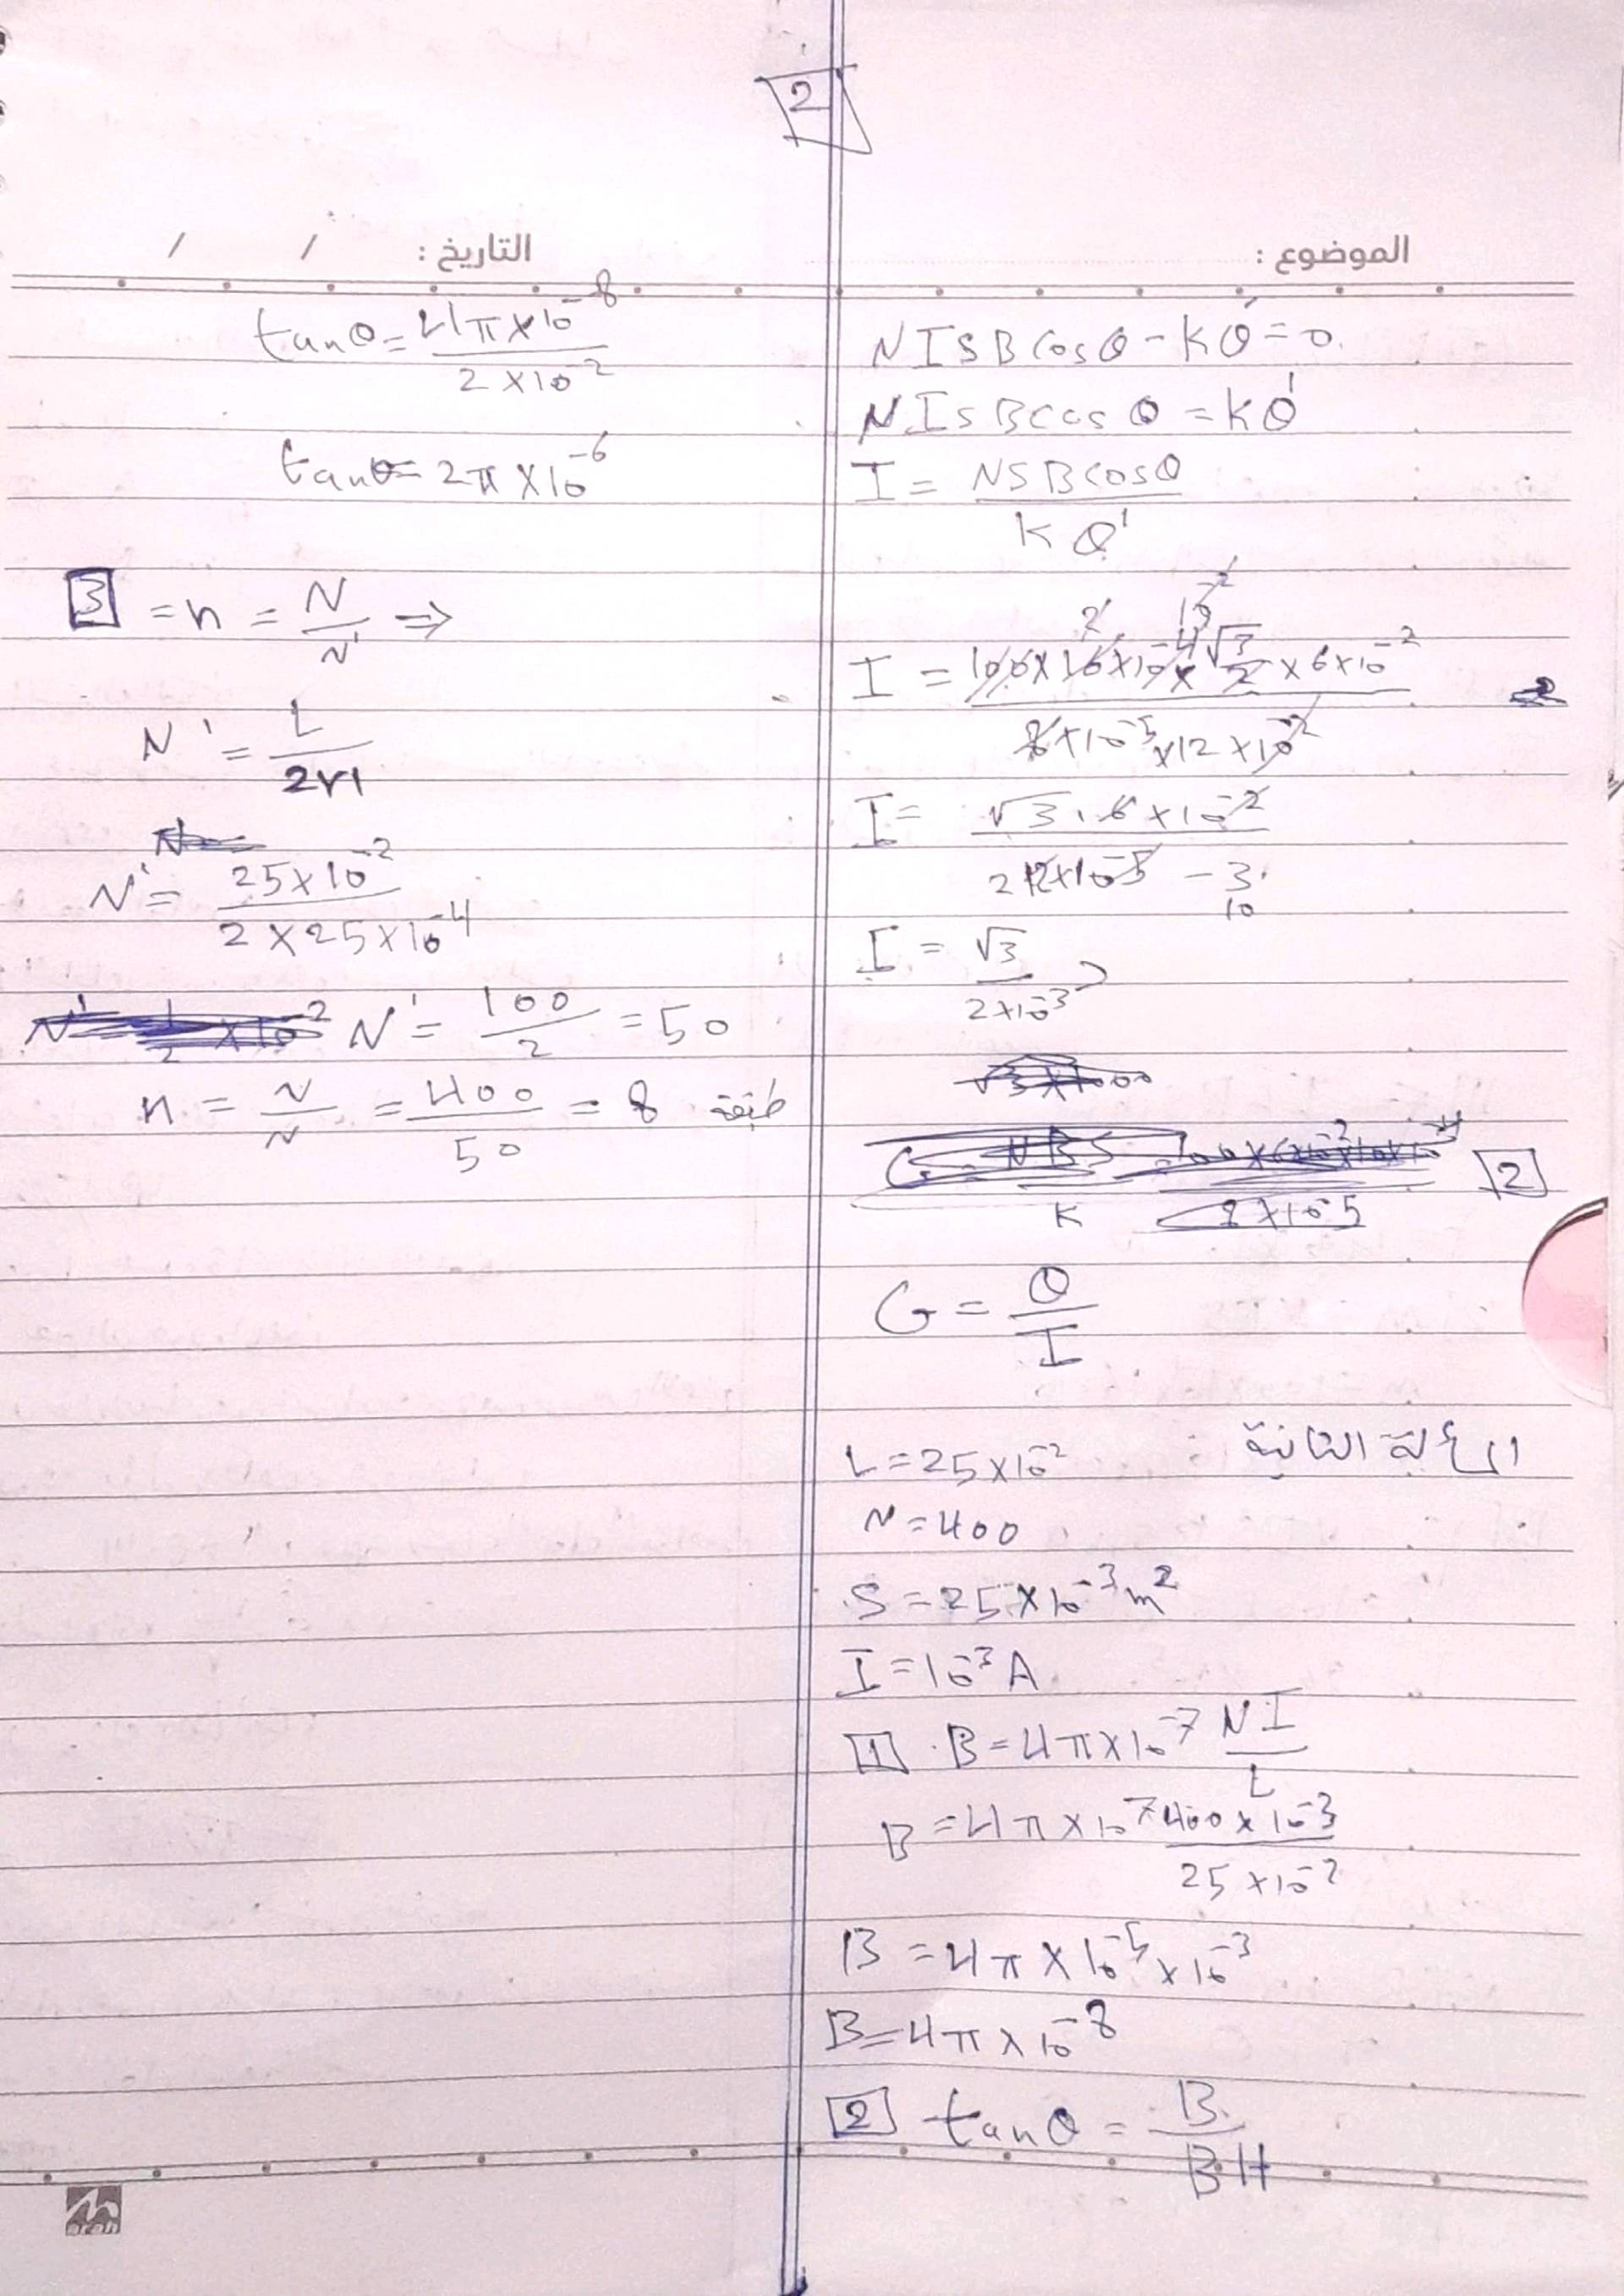 2
الموضوع :
NISBcosθ - Kθ' = 0
NISBcosθ = Kθ'
I = NSBcosθ / Kθ'
I = 100×16×10⁻⁴×√3/2×6×10⁻² / 8×10⁻⁵×12×10⁻²
I = √3.6×10⁻² / 12×10⁻⁵
I = √3 / 2×10⁻³
2
G = θ / I
الحالة الثانية :
L = 25×10⁻²
N = 400
S = 25×10⁻³ m²
I = 10⁻³ A
1 B = 4π×10⁻⁷ NI / L
B = 4π×10⁻⁷ 400×10⁻³ / 25×10⁻²
B = 4π×10⁻⁵×10⁻³
B = 4π×10⁻⁸
2 tanθ = B / BH
التاريخ : / /
tanθ = 4π×10⁻⁸ / 2×10⁻²
tanθ = 2π×10⁻⁶
3 = n = N / N' ⇒
N' = L / 2r'
N' = 25×10⁻² / 2×25×10⁻⁴
N' = 100 / 2 = 50
n = N / N = 400 / 50 = 8 طبقة
aran